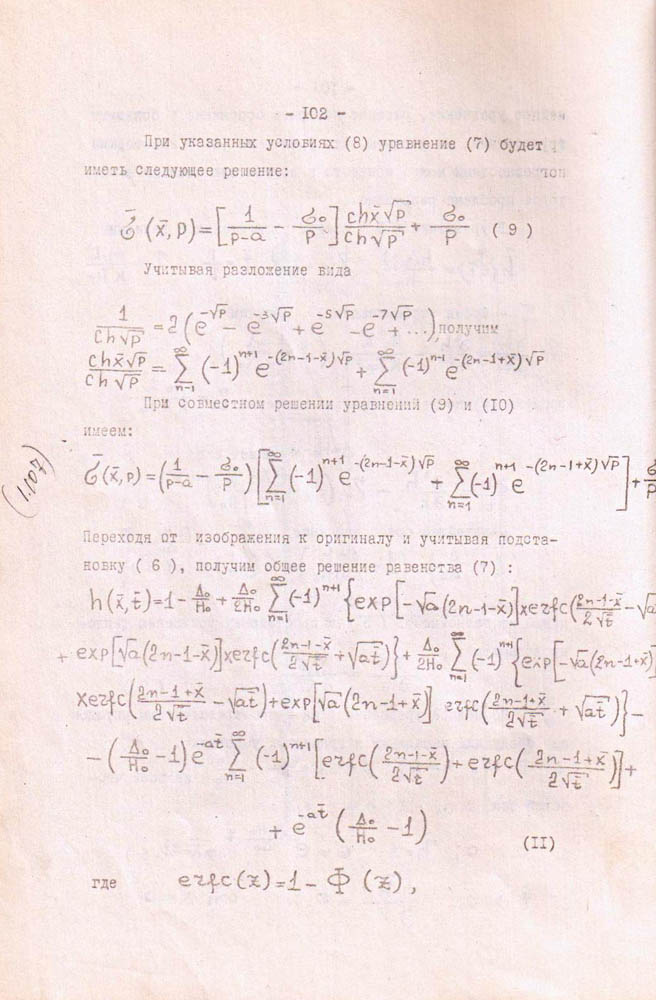 - I02 -
При указанных условиях (8) уравнение (7) будет
иметь следующее решение:
σ̄(x̄,p)=[1/(p-a) - σ₀/p] chx̄√p/ch√p + σ₀/p (9)
Учитывая разложение вида
1/ch√p = 2(e^(-√p) - e^(-3√p) + e^(-5√p) - e^(-7√p) + ...), получим
chx̄√p/ch√p = ∑_(n=1)^∞ (-1)^(n+1) e^(-(2n-1-x̄)√p) + ∑_(n=1)^∞ (-1)^(n-1) e^(-(2n-1+x̄)√p)
При совместном решении уравнений (9) и (I0)
имеем:
(1.107)
σ̄(x̄,p)=(1/(p-a) - σ₀/p)[∑_(n=1)^∞ (-1)^(n+1) e^(-(2n-1-x̄)√p) + ∑_(n=1)^∞ (-1)^(n+1) e^(-(2n-1+x̄)√p)] + σ₀/p
Переходя от изображения к оригиналу и учитывая подста-
новку ( 6 ), получим общее решение равенства (7) :
h(x̄,t̄)=1- Δ₀/H₀ + Δ₀/2H₀ ∑_(n=1)^∞ (-1)^(n+1) {exp[-√a(2n-1-x̄)]xerfc((2n-1-x̄)/2√t̄ - √a
+ exp[√a(2n-1-x̄)]xerfc((2n-1-x̄)/2√t̄ + √at̄)} + Δ₀/2H₀ ∑_(n=1)^∞ (-1)^(n+1) {exp[-√a(2n-1+x̄)]
xerfc((2n-1+x̄)/2√t̄ - √at̄)+exp[√a(2n-1+x̄)] erfc((2n-1+x̄)/2√t̄ + √at̄)} -
- (Δ₀/H₀ - 1)e^(-at̄) ∑_(n=1)^∞ (-1)^(n+1) [erfc((2n-1-x̄)/2√t̄)+erfc((2n-1+x̄)/2√t̄)] +
+ e^(-at̄) (Δ₀/H₀ - 1) (II)
где erfc(z)=1- Φ̄ (z),